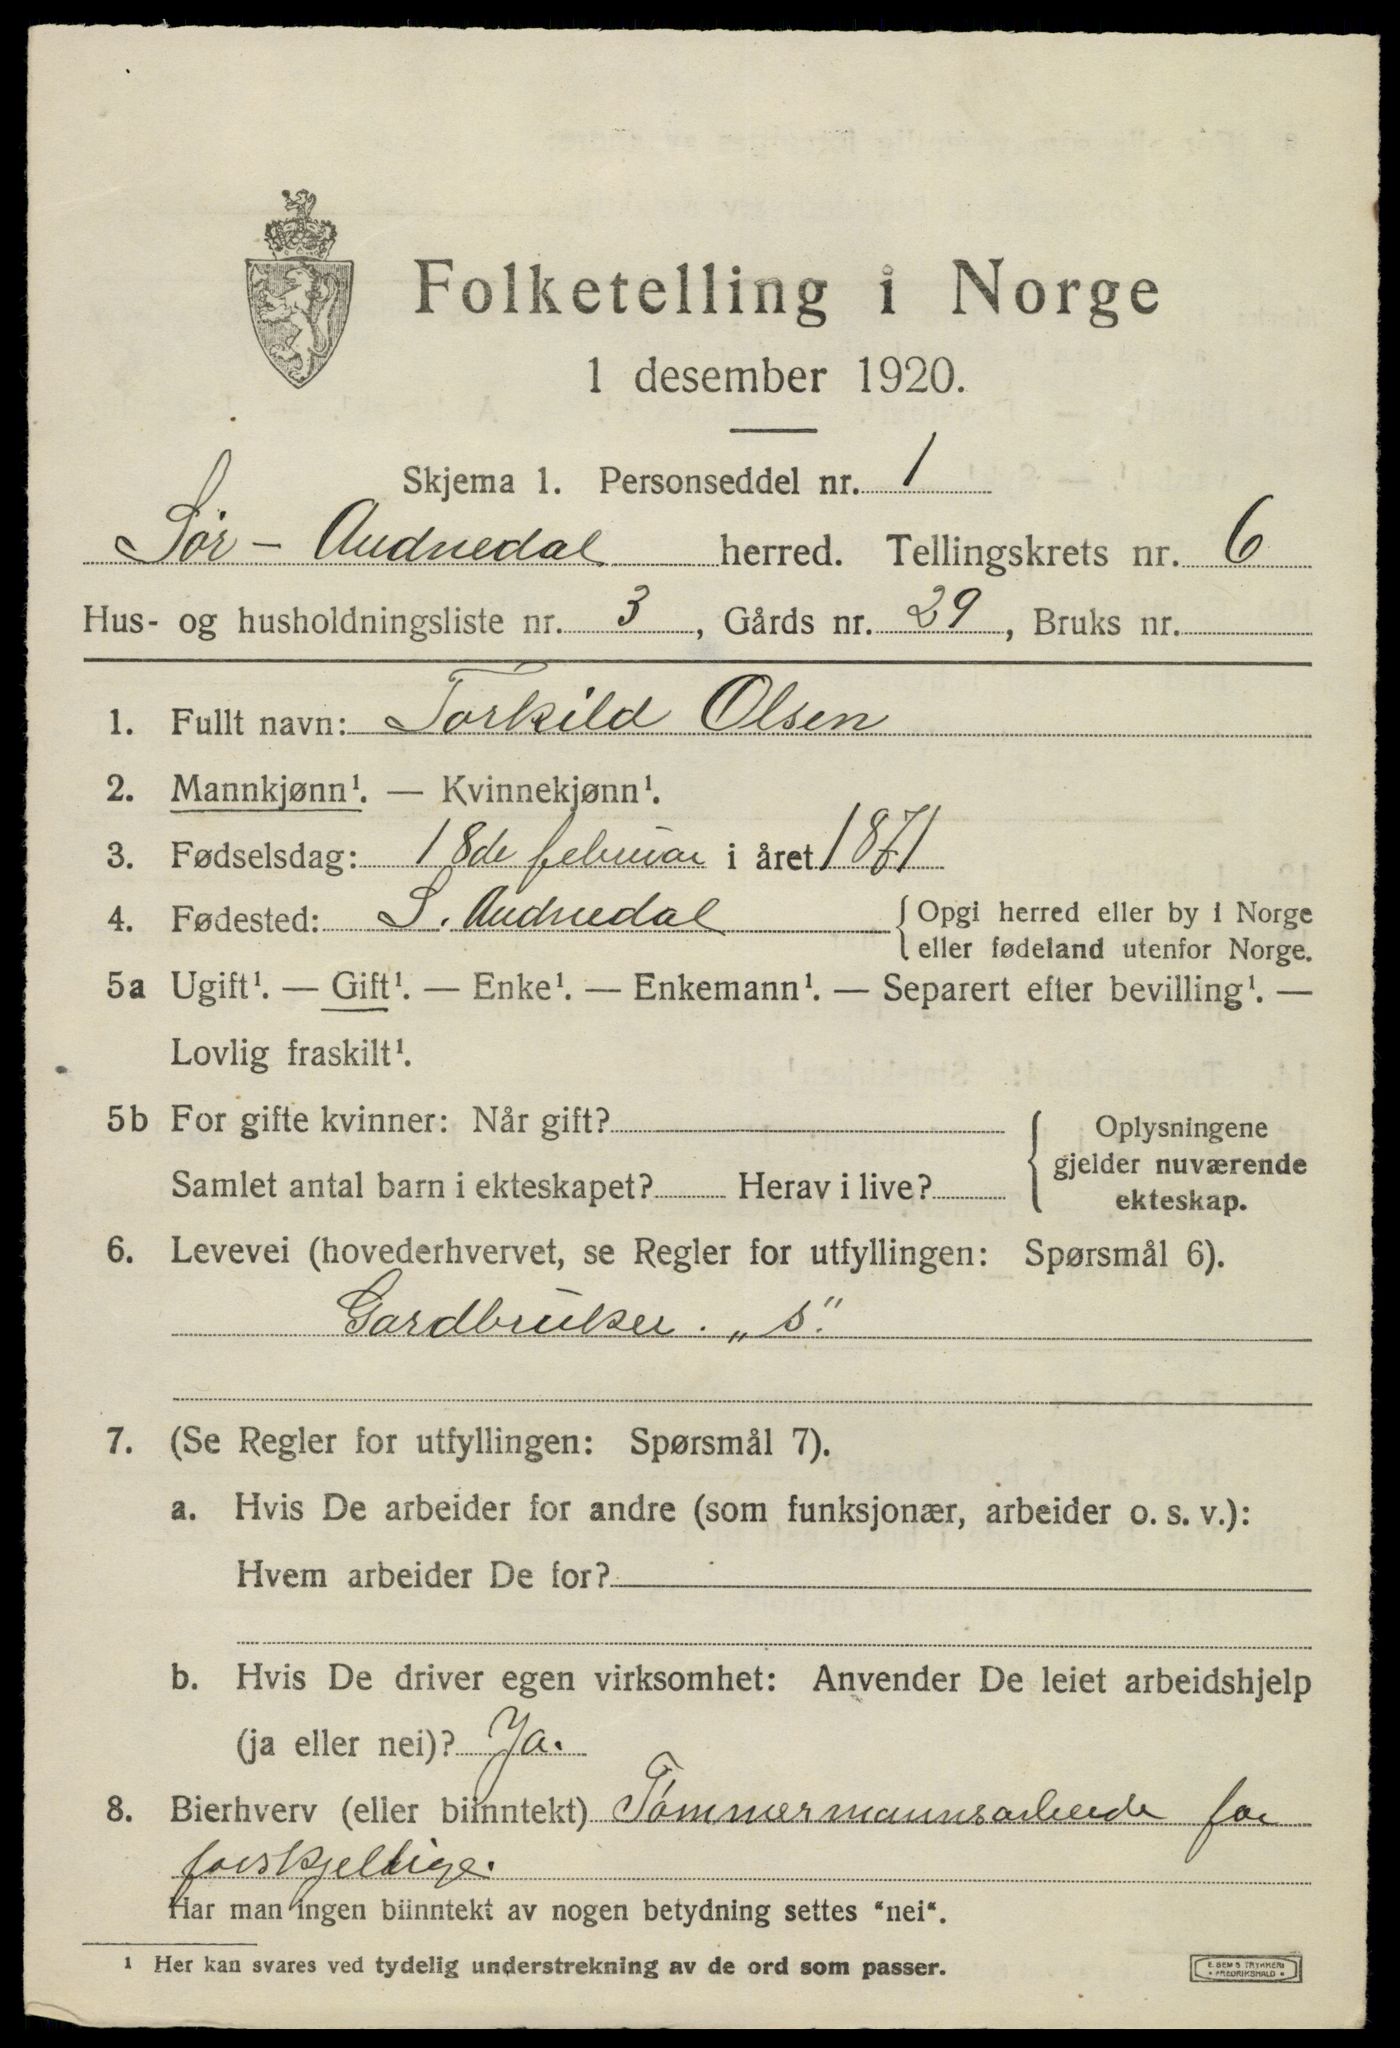 Folketelling i Norge
1 desember 1920.
Skjema 1. Personseddel nr. 1
Sør - Audnedal herred. Tellingskrets nr. 6
Hus- og husholdningsliste nr. 3, Gårds nr. 29, Bruks nr.
1. Fullt navn: Torkild Olsen
2. Mannkjønn¹. — Kvinnekjønn¹.
3. Fødselsdag: 18de februar i året 1871
4. Fødested: S. Audnedal
{Opgi herred eller by i Norge
eller fødeland utenfor Norge.
5a Ugift¹. — Gift¹. — Enke¹. — Enkemann¹. — Separert efter bevilling¹. —
Lovlig fraskilt¹.
5b For gifte kvinner: Når gift?
Samlet antal barn i ekteskapet? Herav i live?
{Oplysningene
gjelder nuværende
ekteskap.
6. Levevei (hovederhvervet, se Regler for utfyllingen: Spørsmål 6).
Gardbruker. „s".
7. (Se Regler for utfyllingen: Spørsmål 7).
a. Hvis De arbeider for andre (som funksjonær, arbeider o. s. v.):
Hvem arbeider De for?
b. Hvis De driver egen virksomhet: Anvender De leiet arbeidshjelp
(ja eller nei)? Ja.
8. Bierhverv (eller biinntekt) Tømmermannsarbeide for
forskjellige.
Har man ingen biinntekt av nogen betydning settes "nei".
¹ Her kan svares ved tydelig understrekning av de ord som passer.
E. SEM'S TRYKKERI
• FREDRIKSHALD •